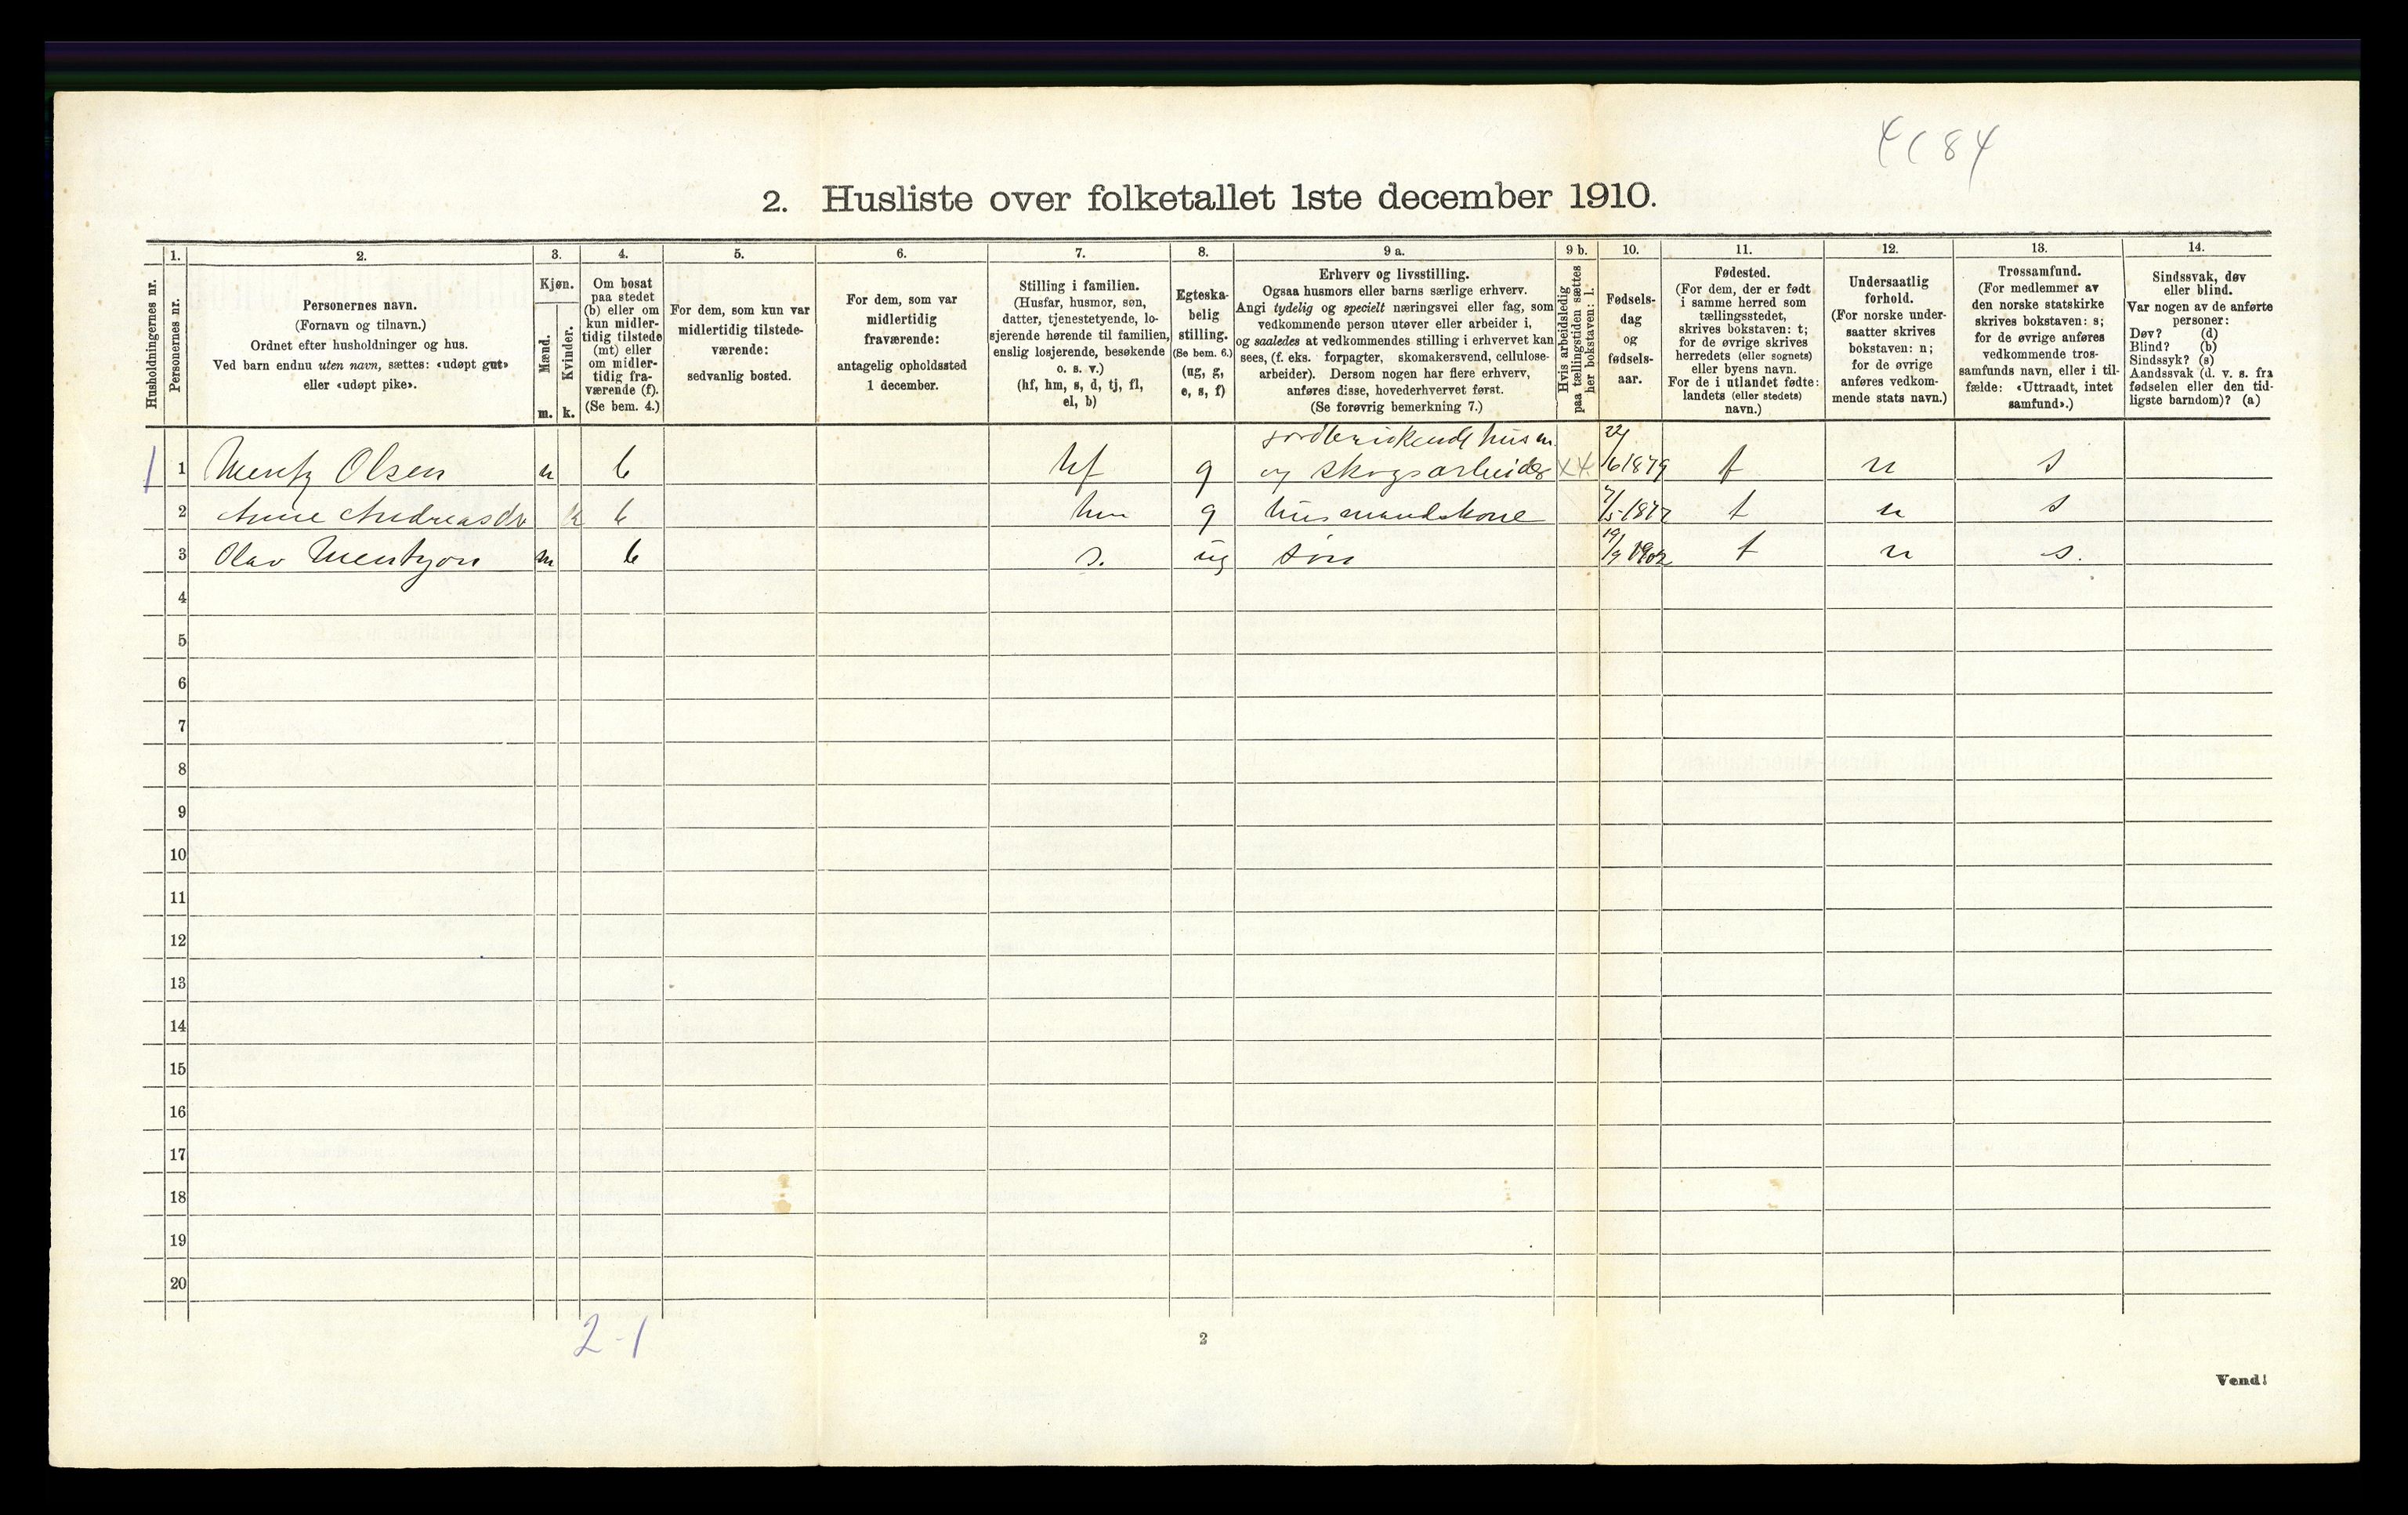 4(84
2. Husliste over folketallet 1ste december 1910.
Husholdningernes nr.
1.
Personernes nr.
2.
Personernes navn.
(Fornavn og tilnavn.)
Ordnet efter husholdninger og hus.
Ved barn endnu uten navn, sættes: «udøpt gut»
eller «udøpt pike».
3.
Kjøn.
Mænd.
m.
Kvinder.
k.
4.
Om bosat
paa stedet
(b) eller om
kun midler-
tidig tilstede
(mt) eller
om midler-
tidig fra-
værende (f).
(Se bem. 4.)
5.
For dem, som kun var
midlertidig tilstede-
værende:
sedvanlig bosted.
6.
For dem, som var
midlertidig
fraværende:
antagelig opholdssted
1 december.
7.
Stilling i familien.
(Husfar, husmor, søn,
datter, tjenestetyende, lo-
sjerende hørende til familien,
enslig losjerende, besøkende
o. s. v.)
(hf, hm, s, d, tj, fl,
el, b)
8.
Egteska-
belig
stilling.
(Se bem. 6.)
(ug, g,
e, s, f)
9 a.
Erhverv og livsstilling.
Ogsaa husmors eller barns særlige erhverv.
Angi tydelig og specielt næringsvei eller fag, som
vedkommende person utøver eller arbeider i,
og saaledes at vedkommendes stilling i erhvervet kan
sees, (f. eks. forpagter, skomakersvend, cellulose-
arbeider). Dersom nogen har flere erhverv,
anføres disse, hovederhvervet først.
(Se forøvrig bemerkning 7.)
9 b.
Hvis arbeidsledig
paa tællingstiden sættes
her bokstaven: l.
10.
Fødsels-
dag
og
fødsels-
aar.
11.
Fødested.
(For dem, der er født
i samme herred som
tællingsstedet,
skrives bokstaven: t;
for de øvrige skrives
herredets (eller sognets)
eller byens navn.
For de i utlandet fødte:
landets (eller stedets)
navn.)
12.
Undersaatlig
forhold.
(For norske under-
saatter skrives
bokstaven: n;
for de øvrige
anføres vedkom-
mende stats navn.)
13.
Trossamfund.
(For medlemmer av
den norske statskirke
skrives bokstaven: s;
for de øvrige anføres
vedkommende tros-
samfunds navn, eller i til-
fælde: «Uttraadt, intet
samfund».)
14.
Sindssvak, døv
eller blind.
Var nogen av de anførte
personer:
Døv? (d)
Blind? (b)
Sindssyk? (s)
Aandssvak (d. v. s. fra
fødselen eller den tid-
ligste barndom)? (a)
jordbrukende husm.
1 1 Mentz Olsen m b hf g og skogsarbeider X4. 22/6 1879 t n s
2 Anne Andreasdr k b hm g husmandskone t n s
3 Olav Mentzon m b s. ug søn 19/9 1902 t n s.
4
5
6
7
8
9
10
11
12
13
14
15
16
17
18
19
20
2-1
2
Vend!